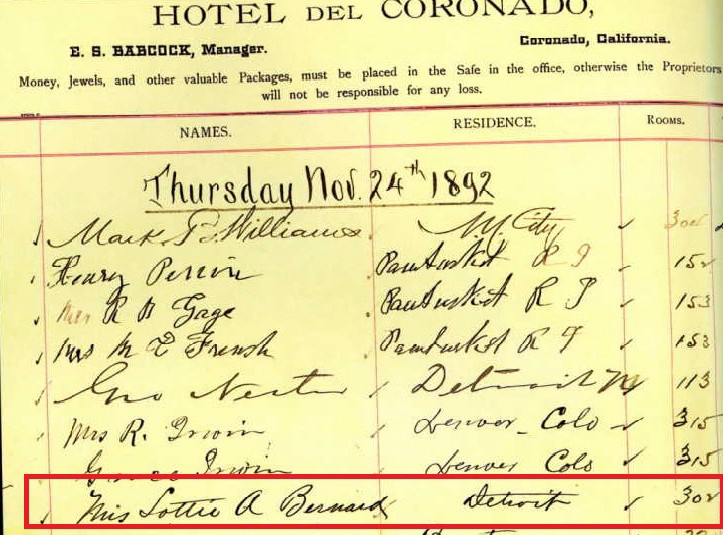 HOTEL DEL CORONADO,
E. S. BABCOCK, Manager. Coronado, California.
Money, Jewels, and other valuable Packages, must be placed in the Safe in the office, otherwise the Proprietors
will not be responsible for any loss.
NAMES. RESIDENCE. ROOMS.
Thursday Nov. 24th 1892
Mark P. Williams N.Y. City
Henry Perrin Pawtucket R I 152
Mrs R H Gage Pawtucket R I 153
Mrs M E French Pawtucket R I 153
Geo Nester Detroit M 113
Mrs R. Irwin Denver Colo 315
Irwin Denver Colo 315
Mrs Lottie A Bernard Detroit 302